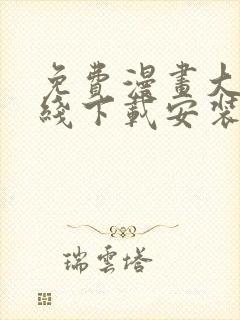 免費漫畫大
綫下載安裝
瑞雲塔